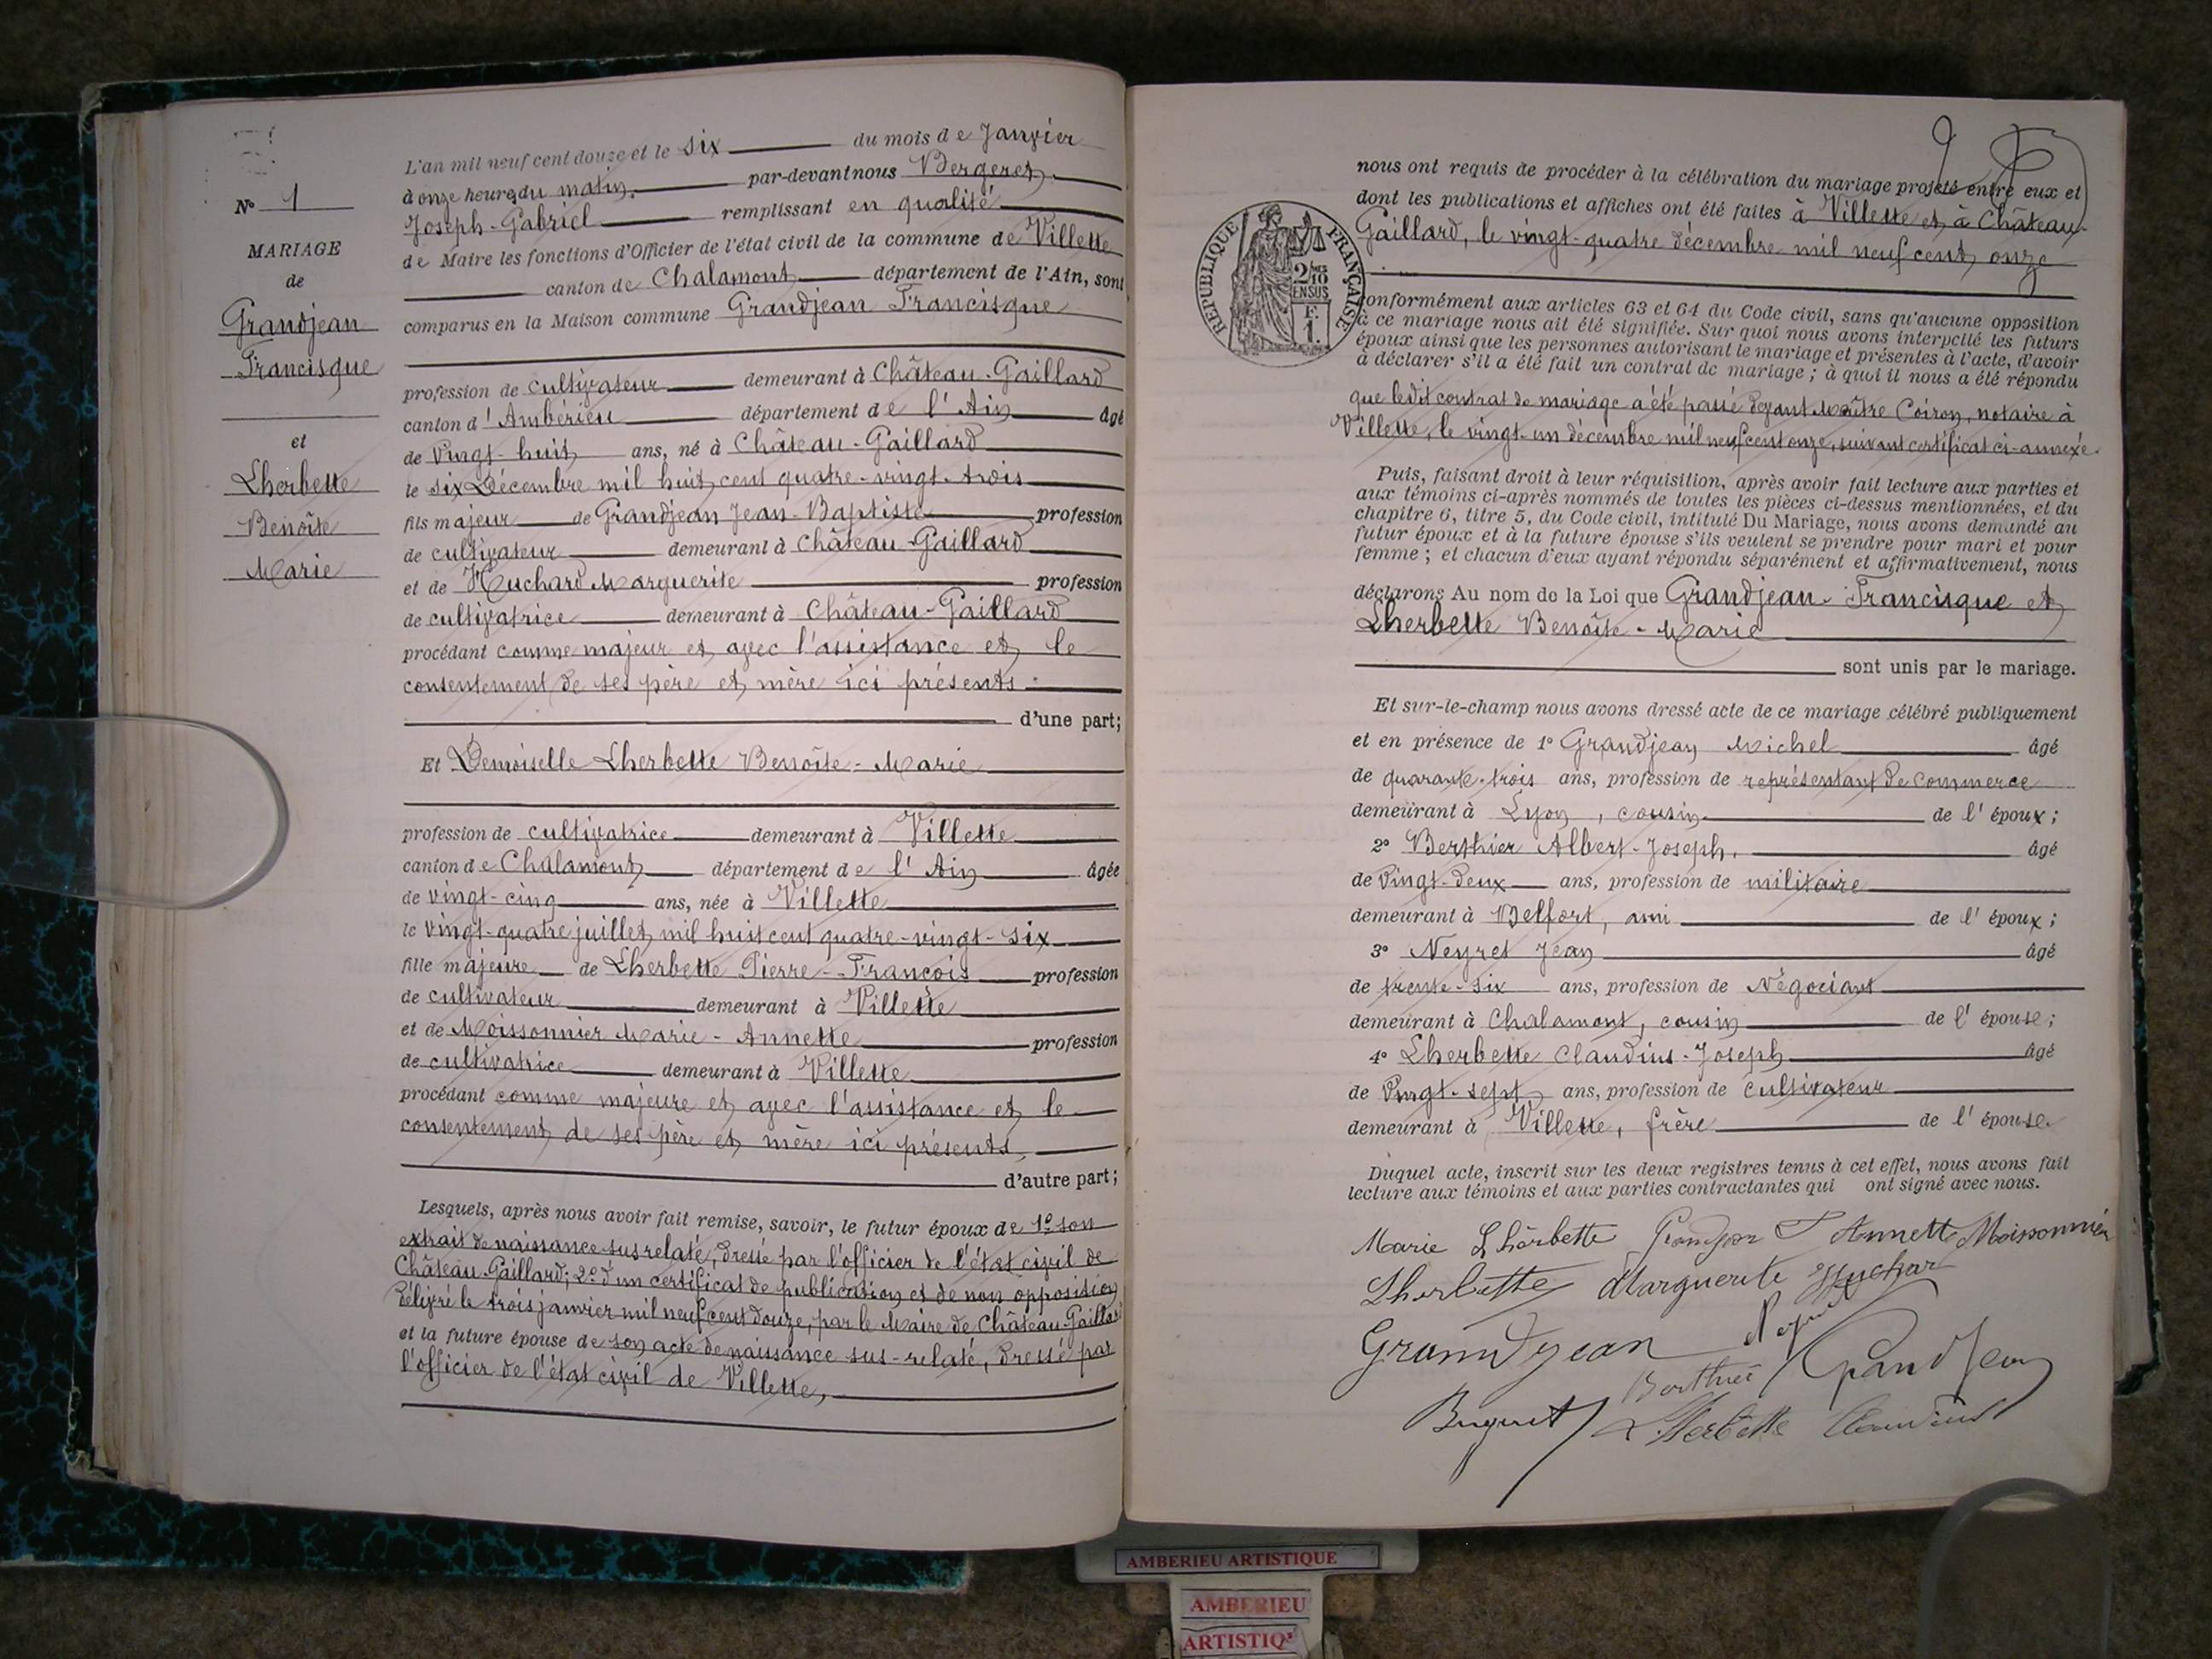 N° 1
MARIAGE
de
Grandjean
Francisque
et
Lherbette
Benoîte
Marie
L'an mil neuf cent douze et le six du mois de Janvier
à onze heures du matin. par-devant nous Bergeret
Joseph-Gabriel remplissant en qualité
de Maire les fonctions d'Officier de l'état civil de la commune de Villette
canton de Chalamont département de l'Ain, sont
comparus en la Maison commune Grandjean Francisque
profession de cultivateur demeurant à Château-Gaillard
canton d'Ambérieu département de l'Ain âgé
de vingt-huit ans, né à Château-Gaillard
le six Décembre mil huit cent quatre-vingt-trois
fils majeur de Grandjean Jean-Baptiste profession
de cultivateur demeurant à Château-Gaillard
et de Huchard Marguerite profession
de cultivatrice demeurant à Château-Gaillard
procédant comme majeur et avec l'assistance et le
consentement de ses père et mère ici présents.
d'une part;
Et Demoiselle Lherbette Benoîte-Marie
profession de cultivatrice demeurant à Villette
canton de Chalamont département de l'Ain âgée
de vingt-cinq ans, née à Villette
le vingt-quatre juillet mil huit cent quatre-vingt-six
fille majeure de Lherbette Pierre-François profession
de cultivateur demeurant à Villette
et de Moissonnier Marie-Annette profession
de cultivatrice demeurant à Villette
procédant comme majeure et avec l'assistance et le
consentement de ses père et mère ici présents,
d'autre part;
Lesquels, après nous avoir fait remise, savoir, le futur époux de 1° son
extrait de naissance sus relaté, dressé par l'officier de l'état civil de
Château-Gaillard; 2° d'un certificat de publication et de non opposition
délivré le trois janvier mil neuf cent douze, par le Maire de Château-Gaillard
et la future épouse de son acte de naissance sus-relaté, dressé par
l'officier de l'état civil de Villette,
2
nous ont requis de procéder à la célébration du mariage projeté entre eux et
dont les publications et affiches ont été faites à Villette et à Château-
Gaillard, le vingt-quatre décembre mil neuf cent onze
RÉPUBLIQUE FRANÇAISE
2/10
EN SUS
F.
1.
conformément aux articles 63 et 64 du Code civil, sans qu'aucune opposition
à ce mariage nous ait été signifiée. Sur quoi nous avons interpellé les futurs
époux ainsi que les personnes autorisant le mariage et présentes à l'acte, d'avoir
à déclarer s'il a été fait un contrat de mariage; à quoi il nous a été répondu
que ledit contrat de mariage a été passé devant Maître Coiron, notaire à
Villette, le vingt-un décembre mil neuf cent onze, suivant certificat ci-annexé.
Puis, faisant droit à leur réquisition, après avoir fait lecture aux parties et
aux témoins ci-après nommés de toutes les pièces ci-dessus mentionnées, et du
chapitre 6, titre 5, du Code civil, intitulé Du Mariage, nous avons demandé au
futur époux et à la future épouse s'ils veulent se prendre pour mari et pour
femme; et chacun d'eux ayant répondu séparément et affirmativement, nous
déclarons Au nom de la Loi que Grandjean-Francisque et
Lherbette Benoîte-Marie
sont unis par le mariage.
Et sur-le-champ nous avons dressé acte de ce mariage célébré publiquement
et en présence de 1° Grandjean Michel âgé
de quarante-trois ans, profession de représentant de commerce
demeurant à Lyon, cousin de l'époux;
2° Berthier Albert-Joseph. âgé
de vingt-deux ans, profession de militaire
demeurant à Belfort, ami de l'époux;
3° Neyret Jean âgé
de trente-six ans, profession de Négociant
demeurant à Chalamont, cousin de l'épouse;
4° Lherbette Claudius-Joseph âgé
de vingt-sept ans, profession de cultivateur
demeurant à Villette, frère de l'épouse.
Duquel acte, inscrit sur les deux registres tenus à cet effet, nous avons fait
lecture aux témoins et aux parties contractantes qui ont signé avec nous.
Marie Lherbette Grandjean F Annette Moissonnier
Lherbette Marguerite Huchar
Grandjean
Berthier Grandjean
Lherbette Claudius
AMBERIEU ARTISTIQUE
AMBERIEU
ARTISTIQ